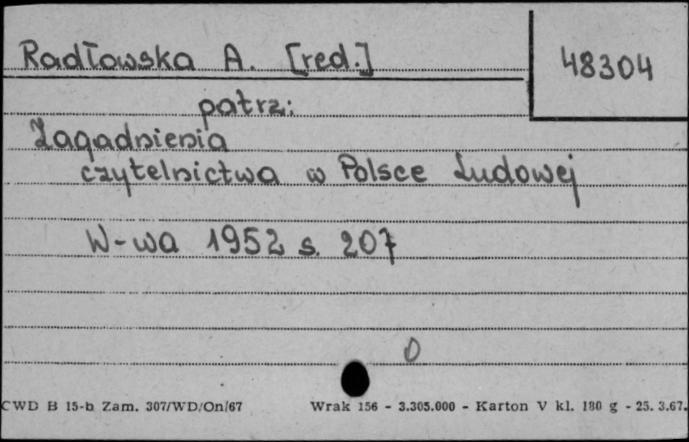 Radłowska A. [red.]
48304
patrz:
Zagadnienia
czytelnictwa w Polsce Ludowej
W-wa 1952 s. 207
0
CWD B 15-b Zam. 307/WD/On/67 Wrak 156 - 3.305.000 - Karton V kl. 180 g - 25. 3.67.